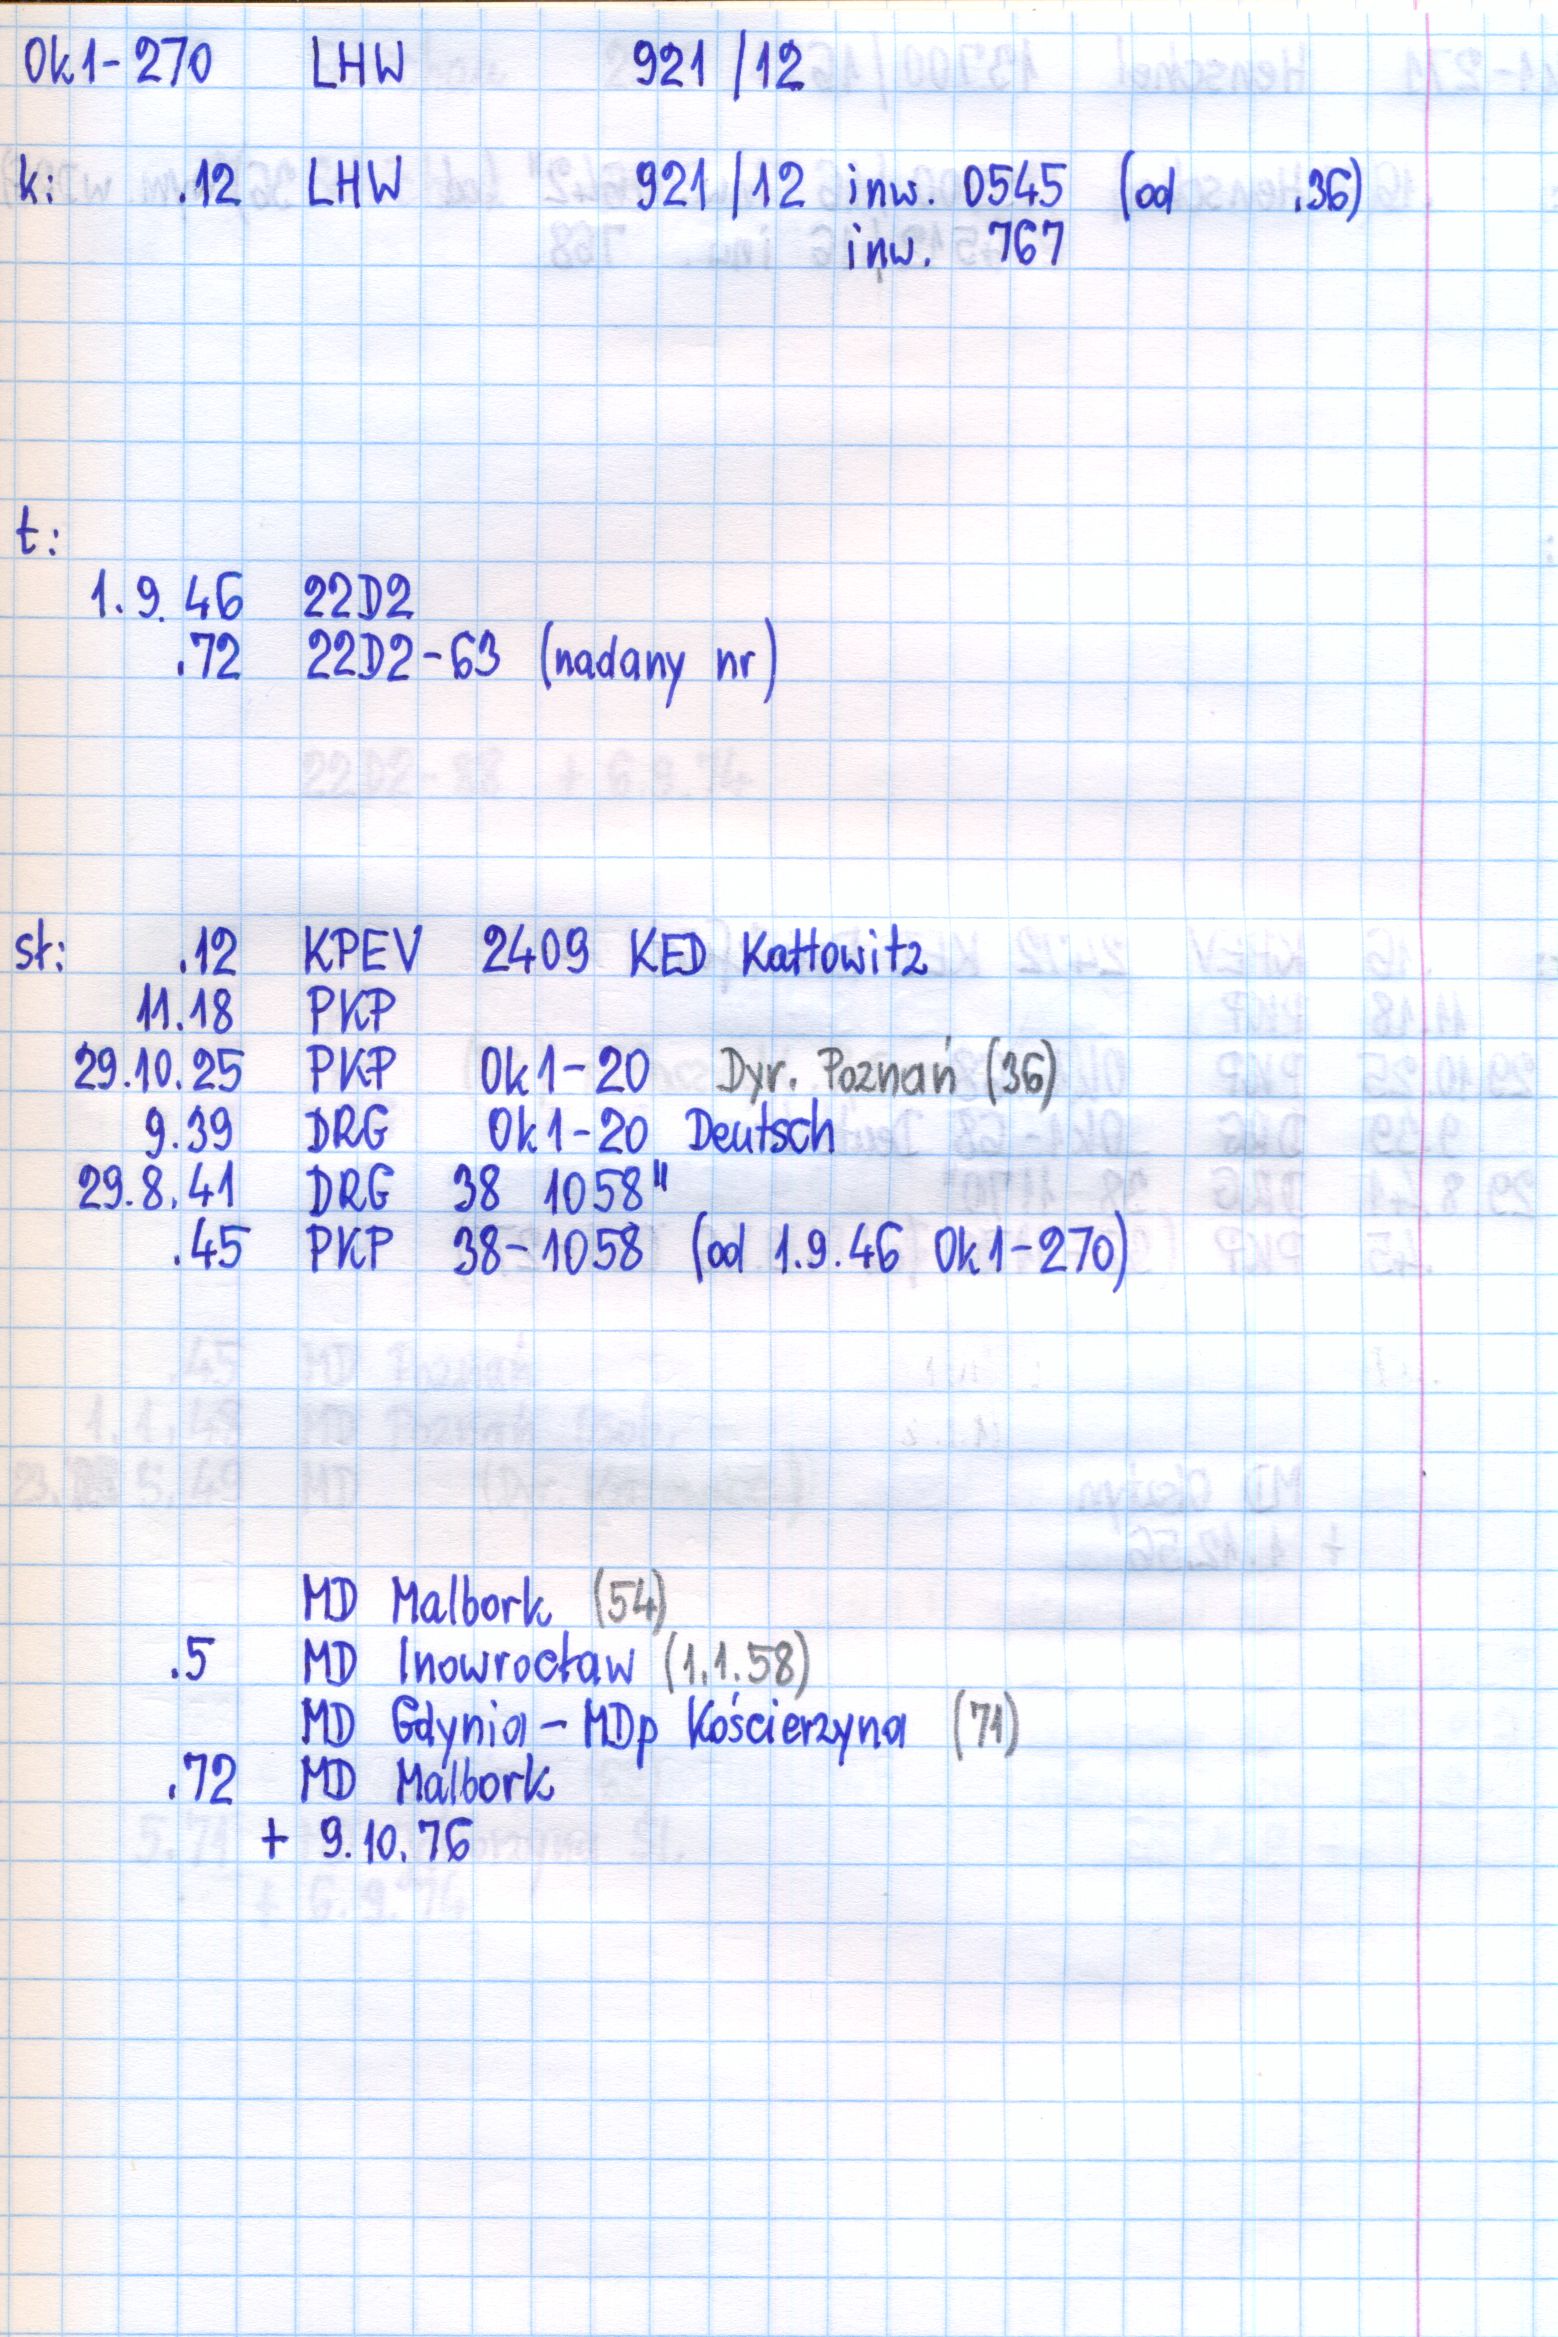 Ok1-270 LHW 921/12
k: .12 LHW 921/12 inw. 0545 (od .36)
inw. 767
t:
1.9.46 22D2
.72 22D2-63 (nadany nr)
sł: .12 KPEV 2409 KED Kattowitz
11.18 PKP
29.10.25 PKP Ok1-20 Dyr. Poznań (36)
9.39 DRG Ok1-20 Deutsch
29.8.41 DRG 38 1058"
.45 PKP 38-1058 (od 1.9.46 Ok1-270)
MD Malbork (54)
.5 MD Inowrocław (1.1.58)
MD Gdynia - MDp Kościerzyna (71)
.72 MD Malbork
+ 9.10.76